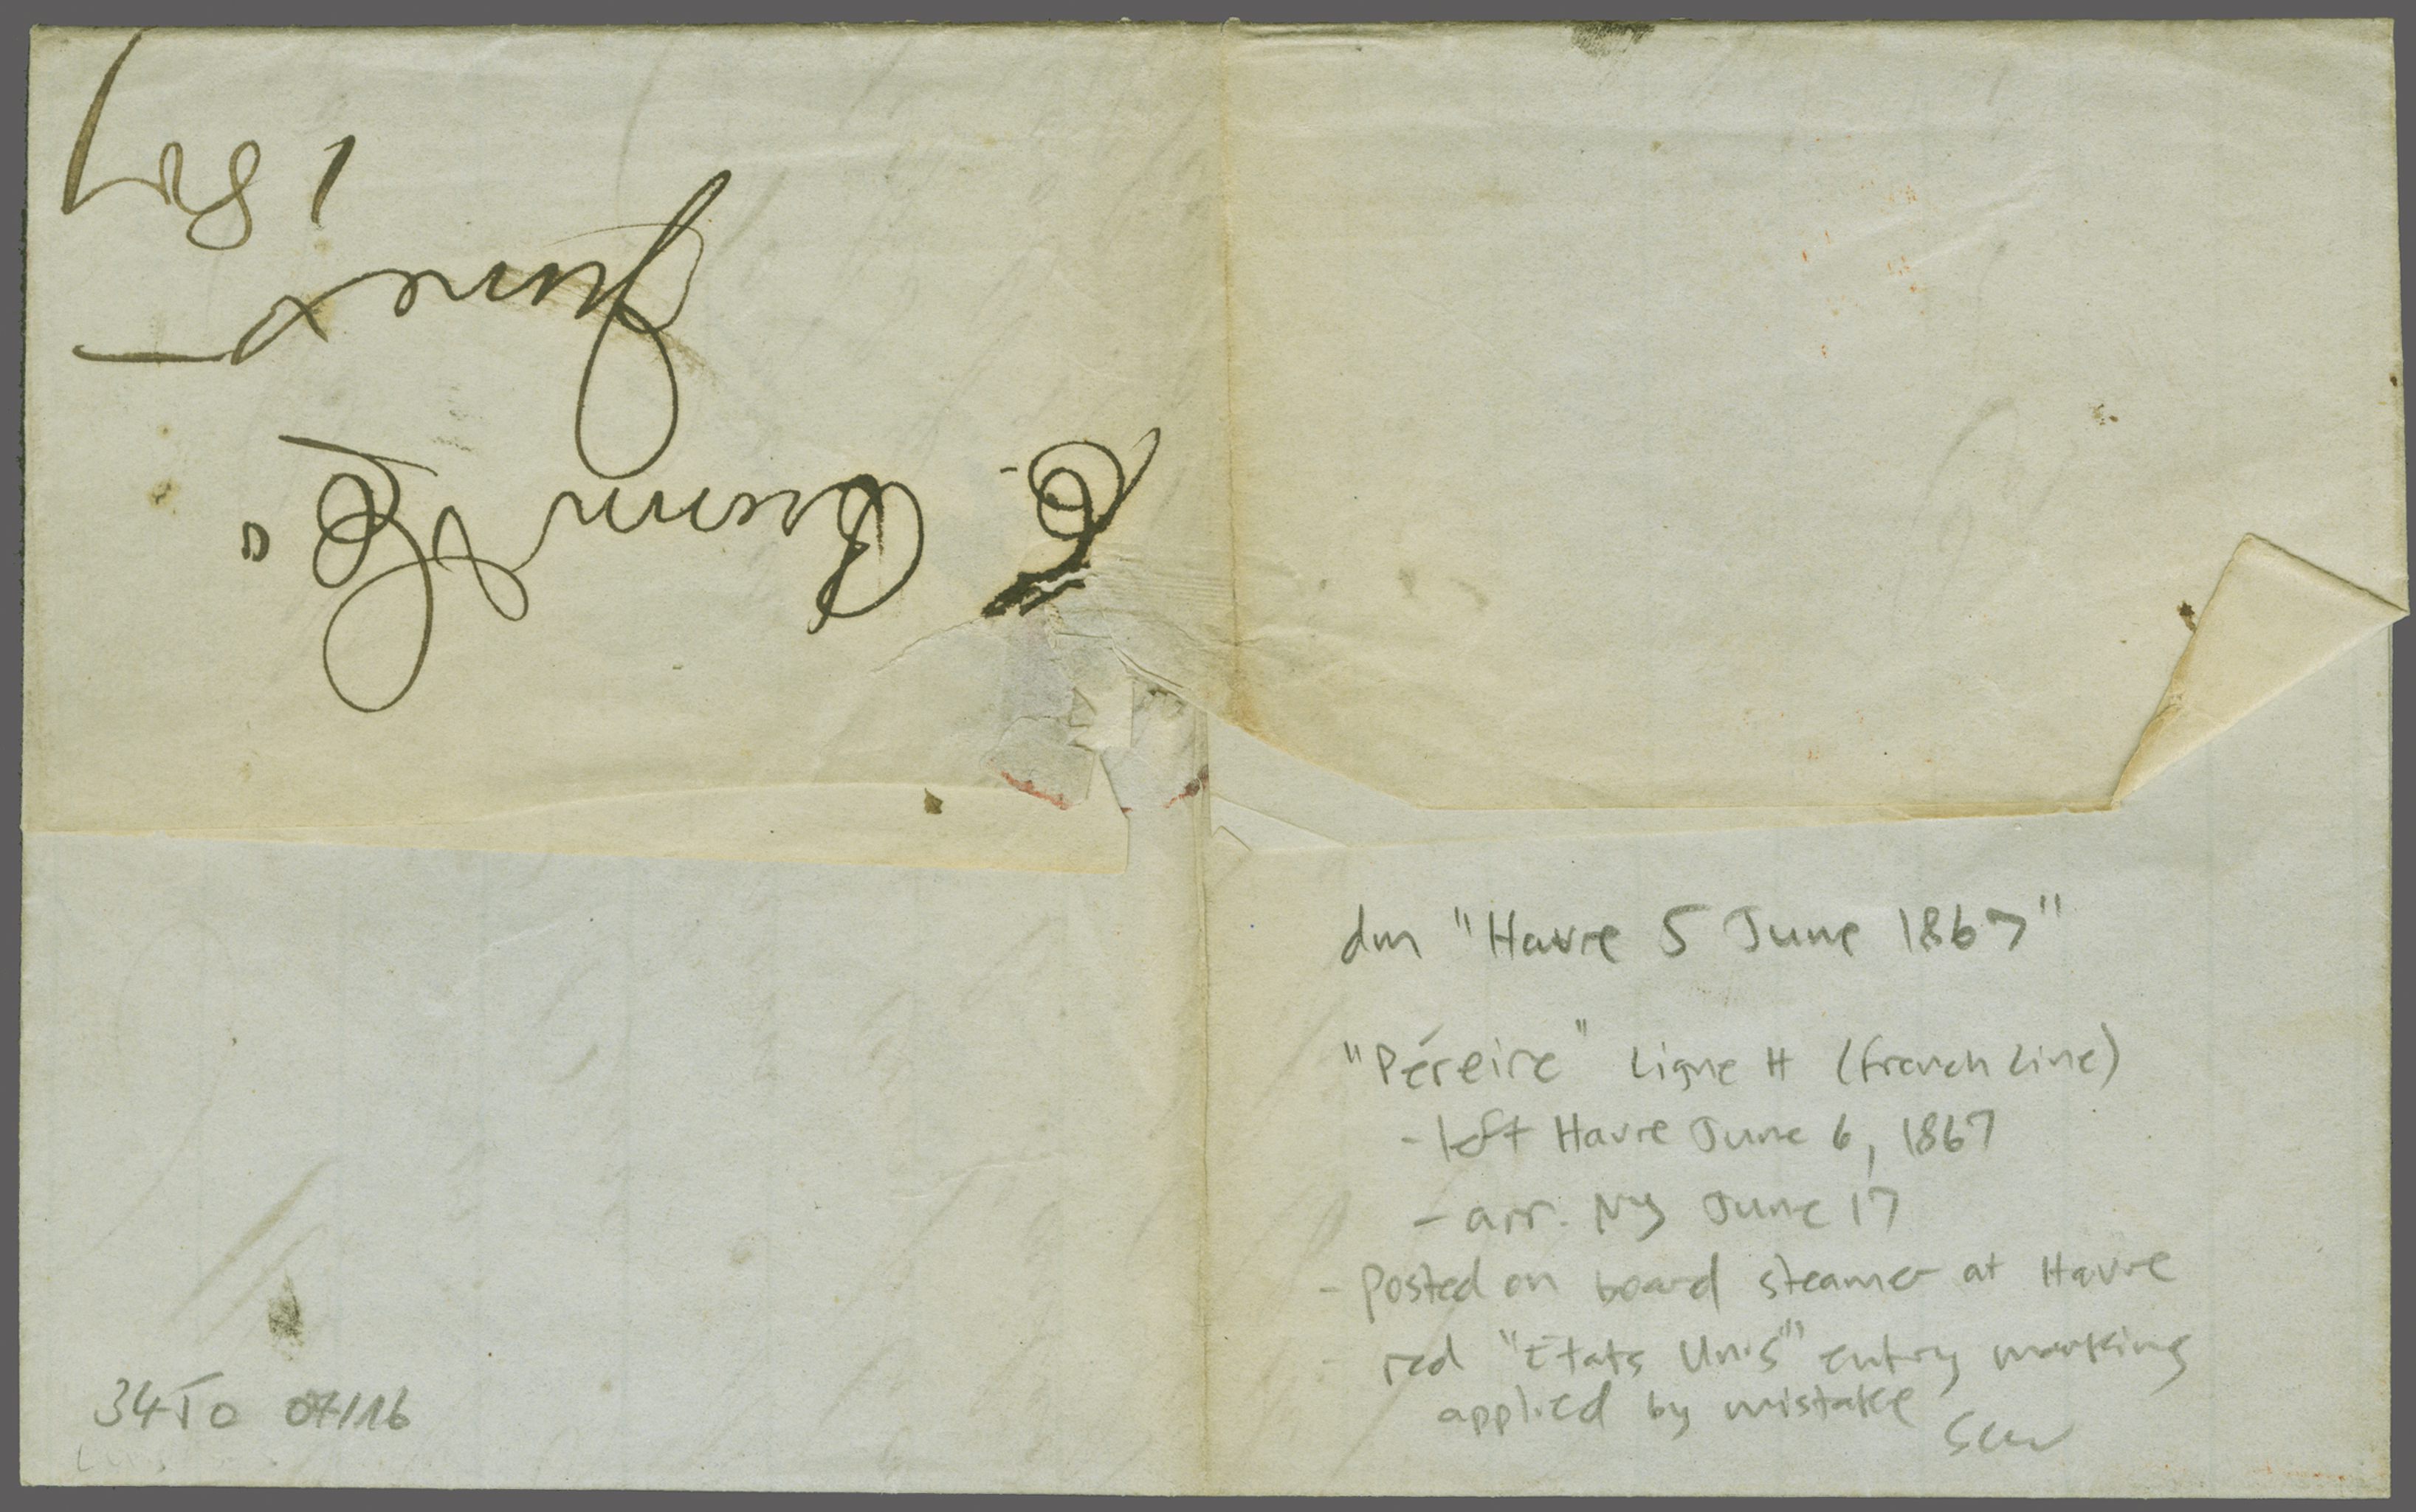 June
1867
dm "Havre 5 June 1867"
"Péreire" Ligne H (French Line)
- left Havre June 6, 1867
- arr. NY June 17
- Posted on board steamer at Havre
- red "Etats Unis" entry marking
applied by mistake
04/16